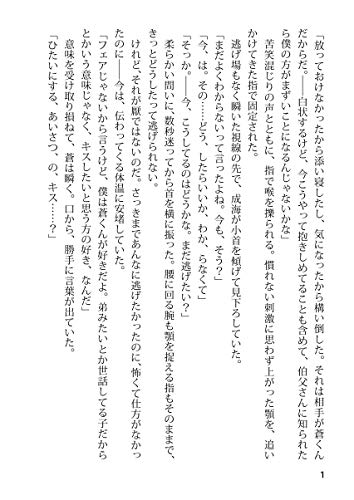 「放っておけなかったから添い寝したし、気になったから構い倒した。それは相手が蒼くん
だからだ。――白状するけど、今こうやって抱きしめてることも含めて、伯父さんに知られた
ら僕の方がまずいことになるんじゃないかな」
苦笑混じりの声とともに、指で喉を撫られる。慣れない刺激に思わず上がった顎を、追い
かけてきた指で固定された。
逃げ場もなく瞬いた視線の先で、成海が小首を傾げて見下ろしていた。
「まだよくわからないって言ったよね。今も、そう？」
「今、は。その……どう、したらいいか、わか、らなくて」
「そっか。――今、こうしてるのはどうかな。まだ逃げたい？」
柔らかい問いに、数秒迷ってから首を横に振った。腰に回る腕も顎を捉える指もそのままで、
きっとどうしたって逃げられない。
けれど、それが厭ではないのだ。さっきまであんなに逃げたかったのに、怖くて仕方がなかっ
たのに――今は、伝わってくる体温に安堵していた。
「フェアじゃないから言うけど、僕は蒼くんが好きだよ。弟みたいとか世話してる子だから
とかいう意味じゃなく、キスしたいと思う方の好き、なんだ」
意味を受け取り損ねて、蒼は瞬く。口から、勝手に言葉が出ていた。
「ひたいにする、あいさつ、の、キス……？」
1